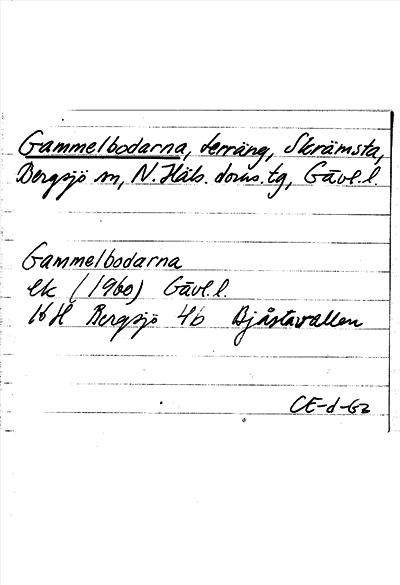 Gammelbodarna, terräng, Skrämsta,
Bergsjö sn, N. Häls. doms. tg, Gävl. l.
Gammelbodarna
ek (1960) Gävl. l.
16 H Bergsjö 4b Bjåstavallen
CE-d-62